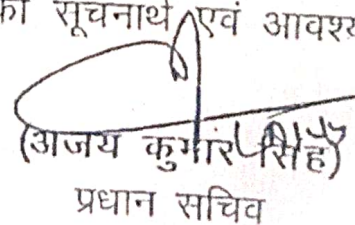 का सूचनार्थ एवं आवश्य
(अजय कुमार सिंह)
प्रधान सचिव